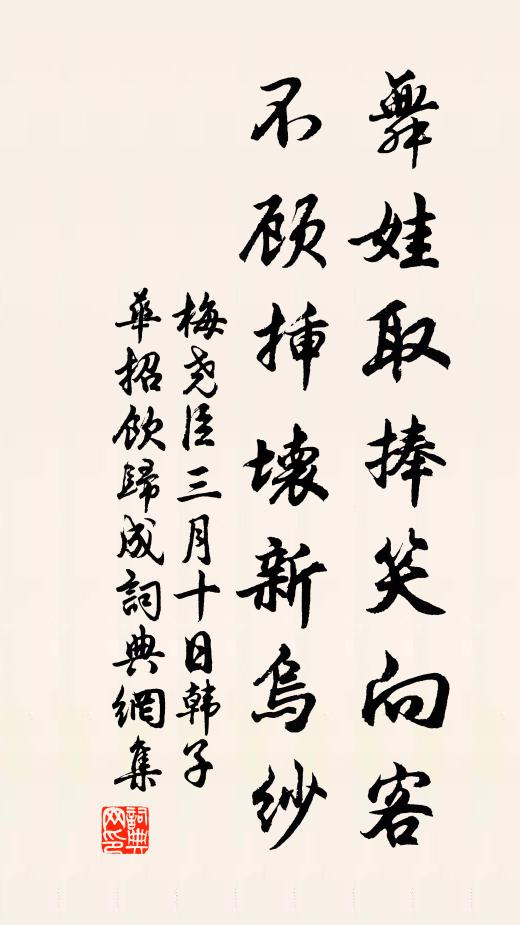 舞娃取捧笑向客
不顾插壊新烏紗
梅尧臣三月十日韩子
華招飲歸成詞典網集
詞典網印